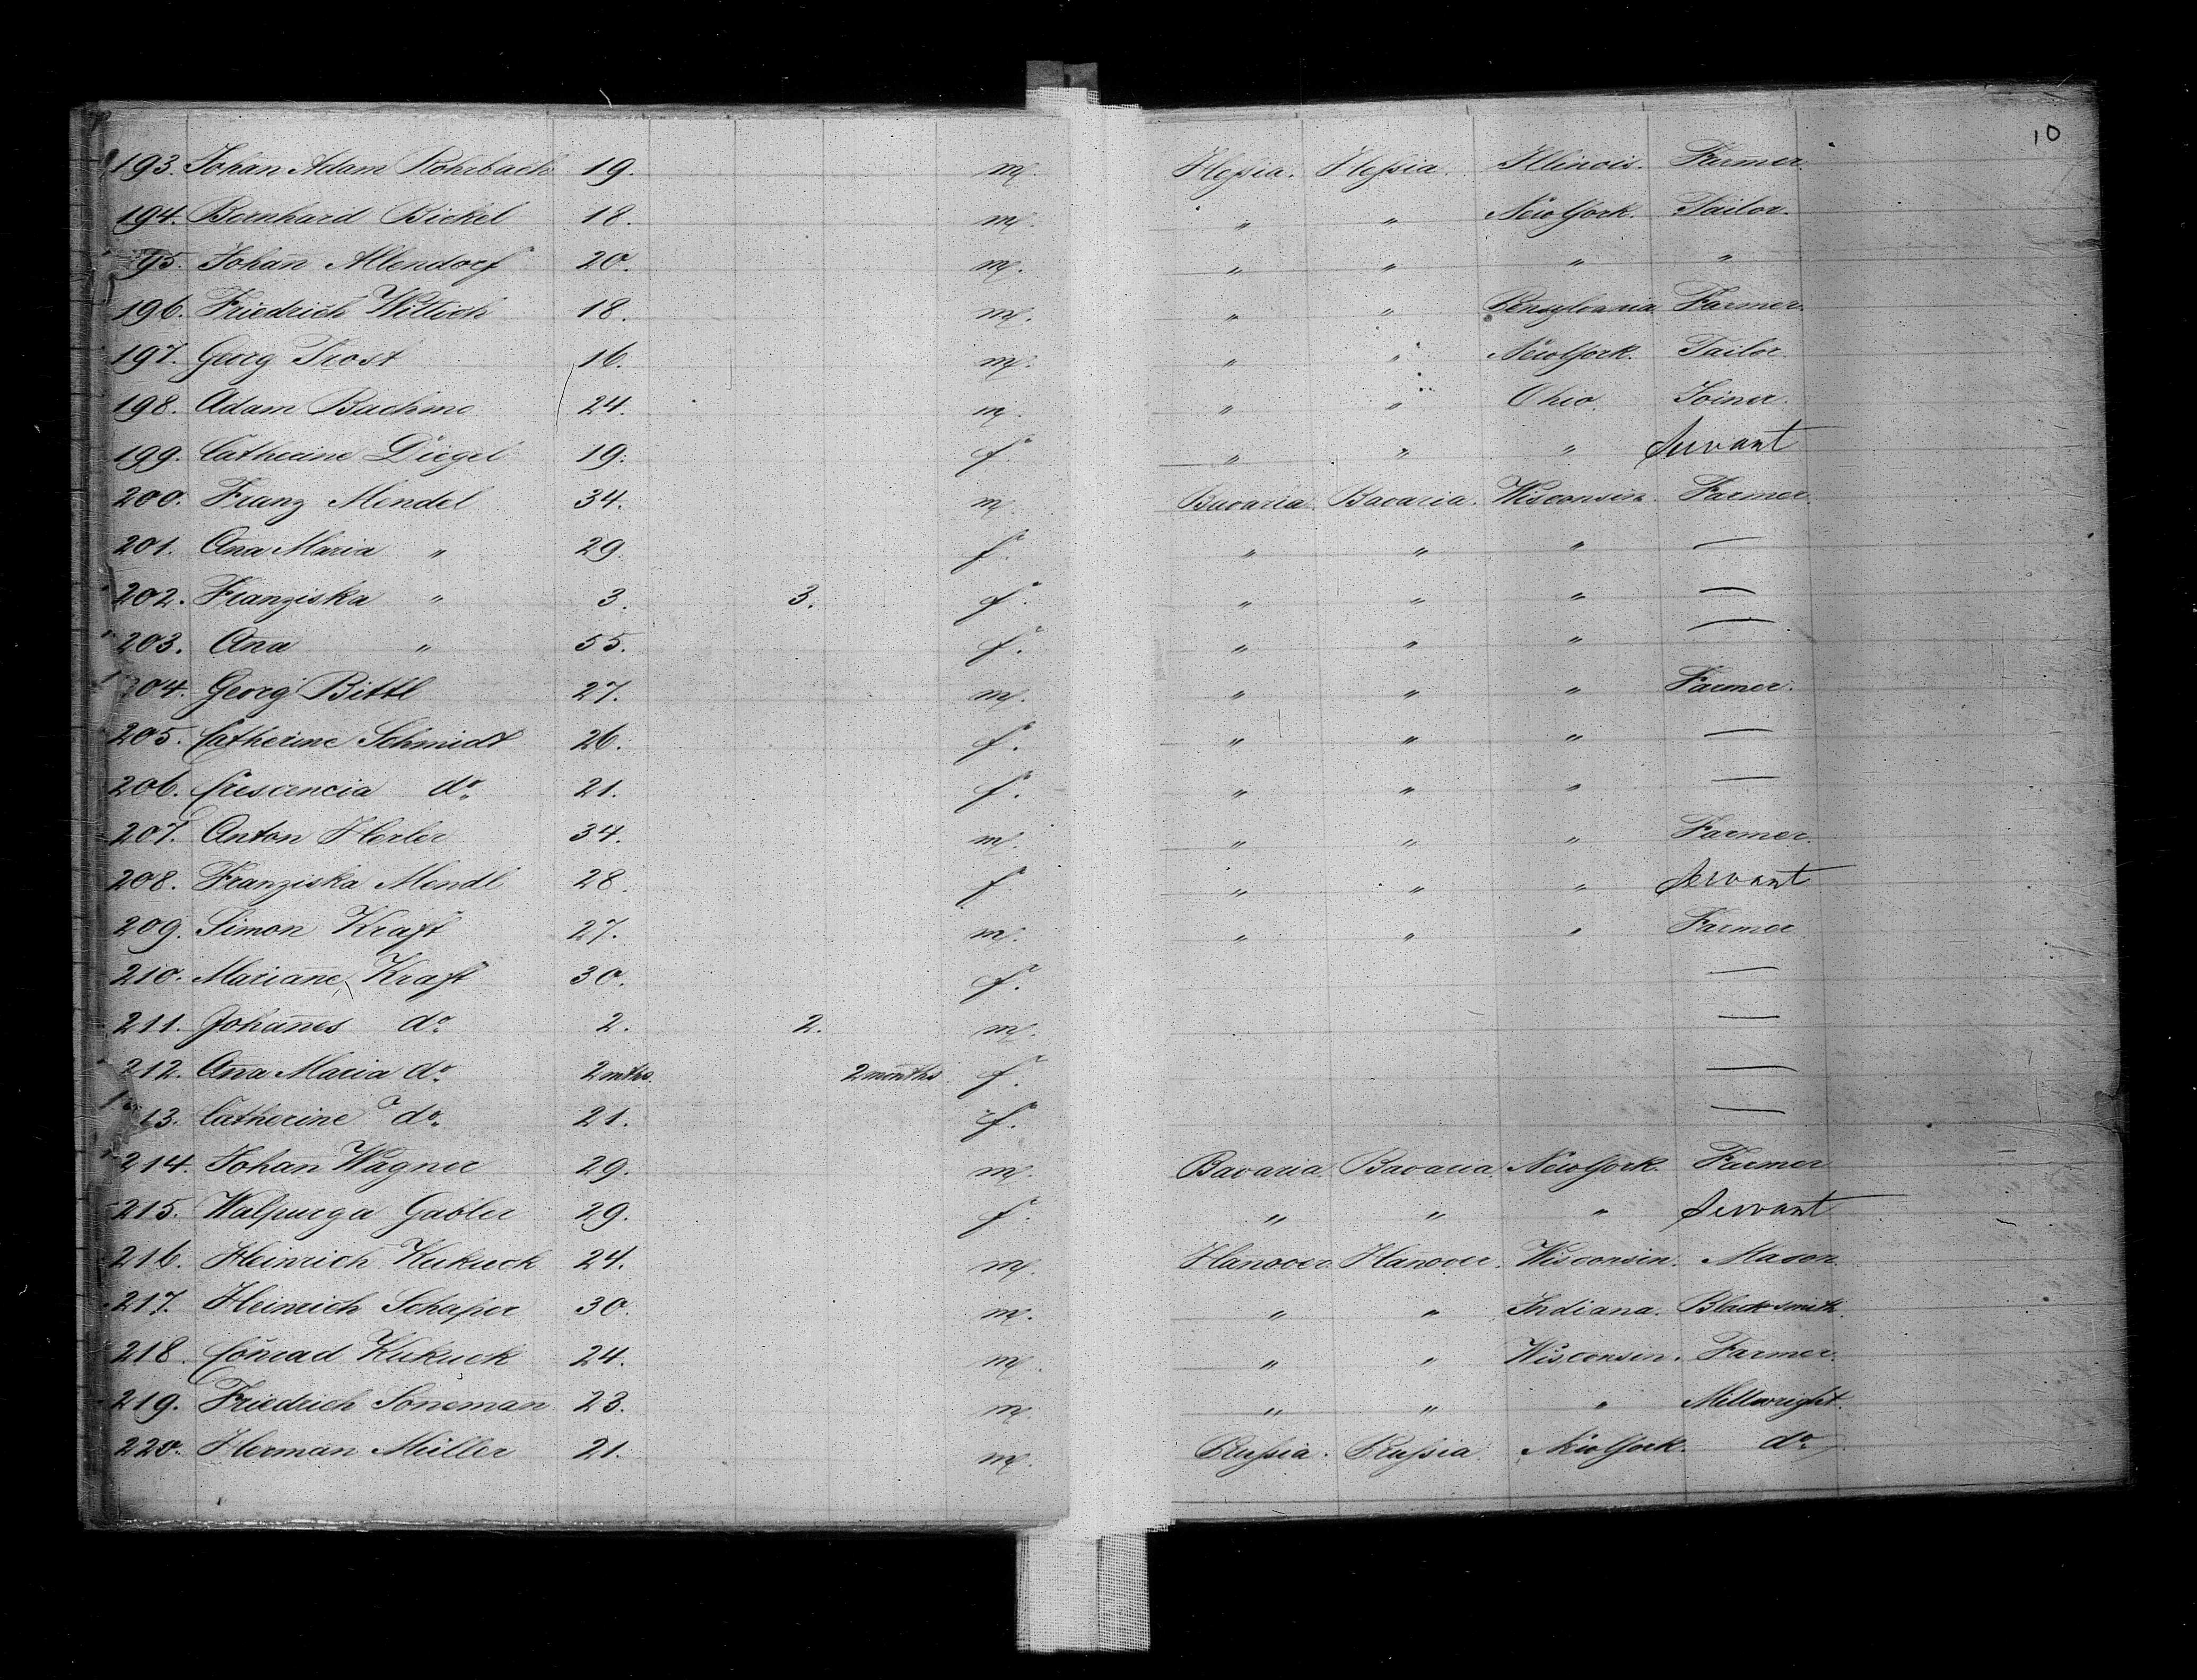 10
193. Johan Adam Rohrbach 19. m. Hessia. Hessia. Illinois. Farmer.
194. Bernhard Bickel 18. m. " " New York. Tailor.
95. Johan̄ Allendorf 20. m. " " " "
196. Friedrich Wittich 18. m. " " Pensylvania Farmer.
197. Georg Trost 16. m. " " New York. Tailor.
198. Adam Bachmo 24. m. " " Ohio. Joiner.
199. Catherine Diegel 19. f. " " " Servant
200. Franz Mendel 34. m. Bavaria. Bavaria. Wisconsin. Farmer.
201. Ana Maria " 29. f. " " " —
202. Franziska " 3. 3. f. " " " —
203. Ana " 55. f. " " " —
204. Georg Bittl 27. m. " " " Farmer.
205. Catherine Schmidt 26. f. " " " —
206. Crescencia do. 21. f. " " " —
207. Anton Herler 34. m. " " " Farmer.
208. Franziska Mendl 28. f. " " " Servant
209. Simon Kraft 27. m. " " " Farmer
210. Mariane Kraft 30. f. —
211. Johan̄es do. 2. 2. m. —
212. An̄a Maria do. 2 mths. 2 months. f. —
13. Catherine do. 21. f. —
214. Johan Wagner 29. m. Bavaria. Bavaria. New York. Farmer
215. Walpurga Gabler 29. f. " " " Servant
216. Heinrich Kukuck 24. m. Hanover. Hanover. Wisconsin. Mason.
217. Heinrich Schaper 30. m. " " Indiana. Blacksmith.
218. Conrad Kukuck 24. m. " " Wisconsin. Farmer.
219. Friedrich Soneman 23. m. " " " Millwright.
220. Herman Müller 21. m. Prussia. Prussia. New York. do.